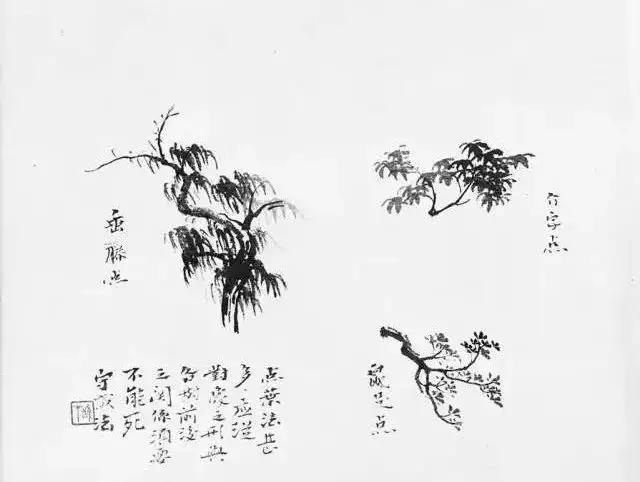 介字点
鼠足点
垂藤点
点葉法甚
多应從
對象之形與
前後
之関係須要
不能死
守成法